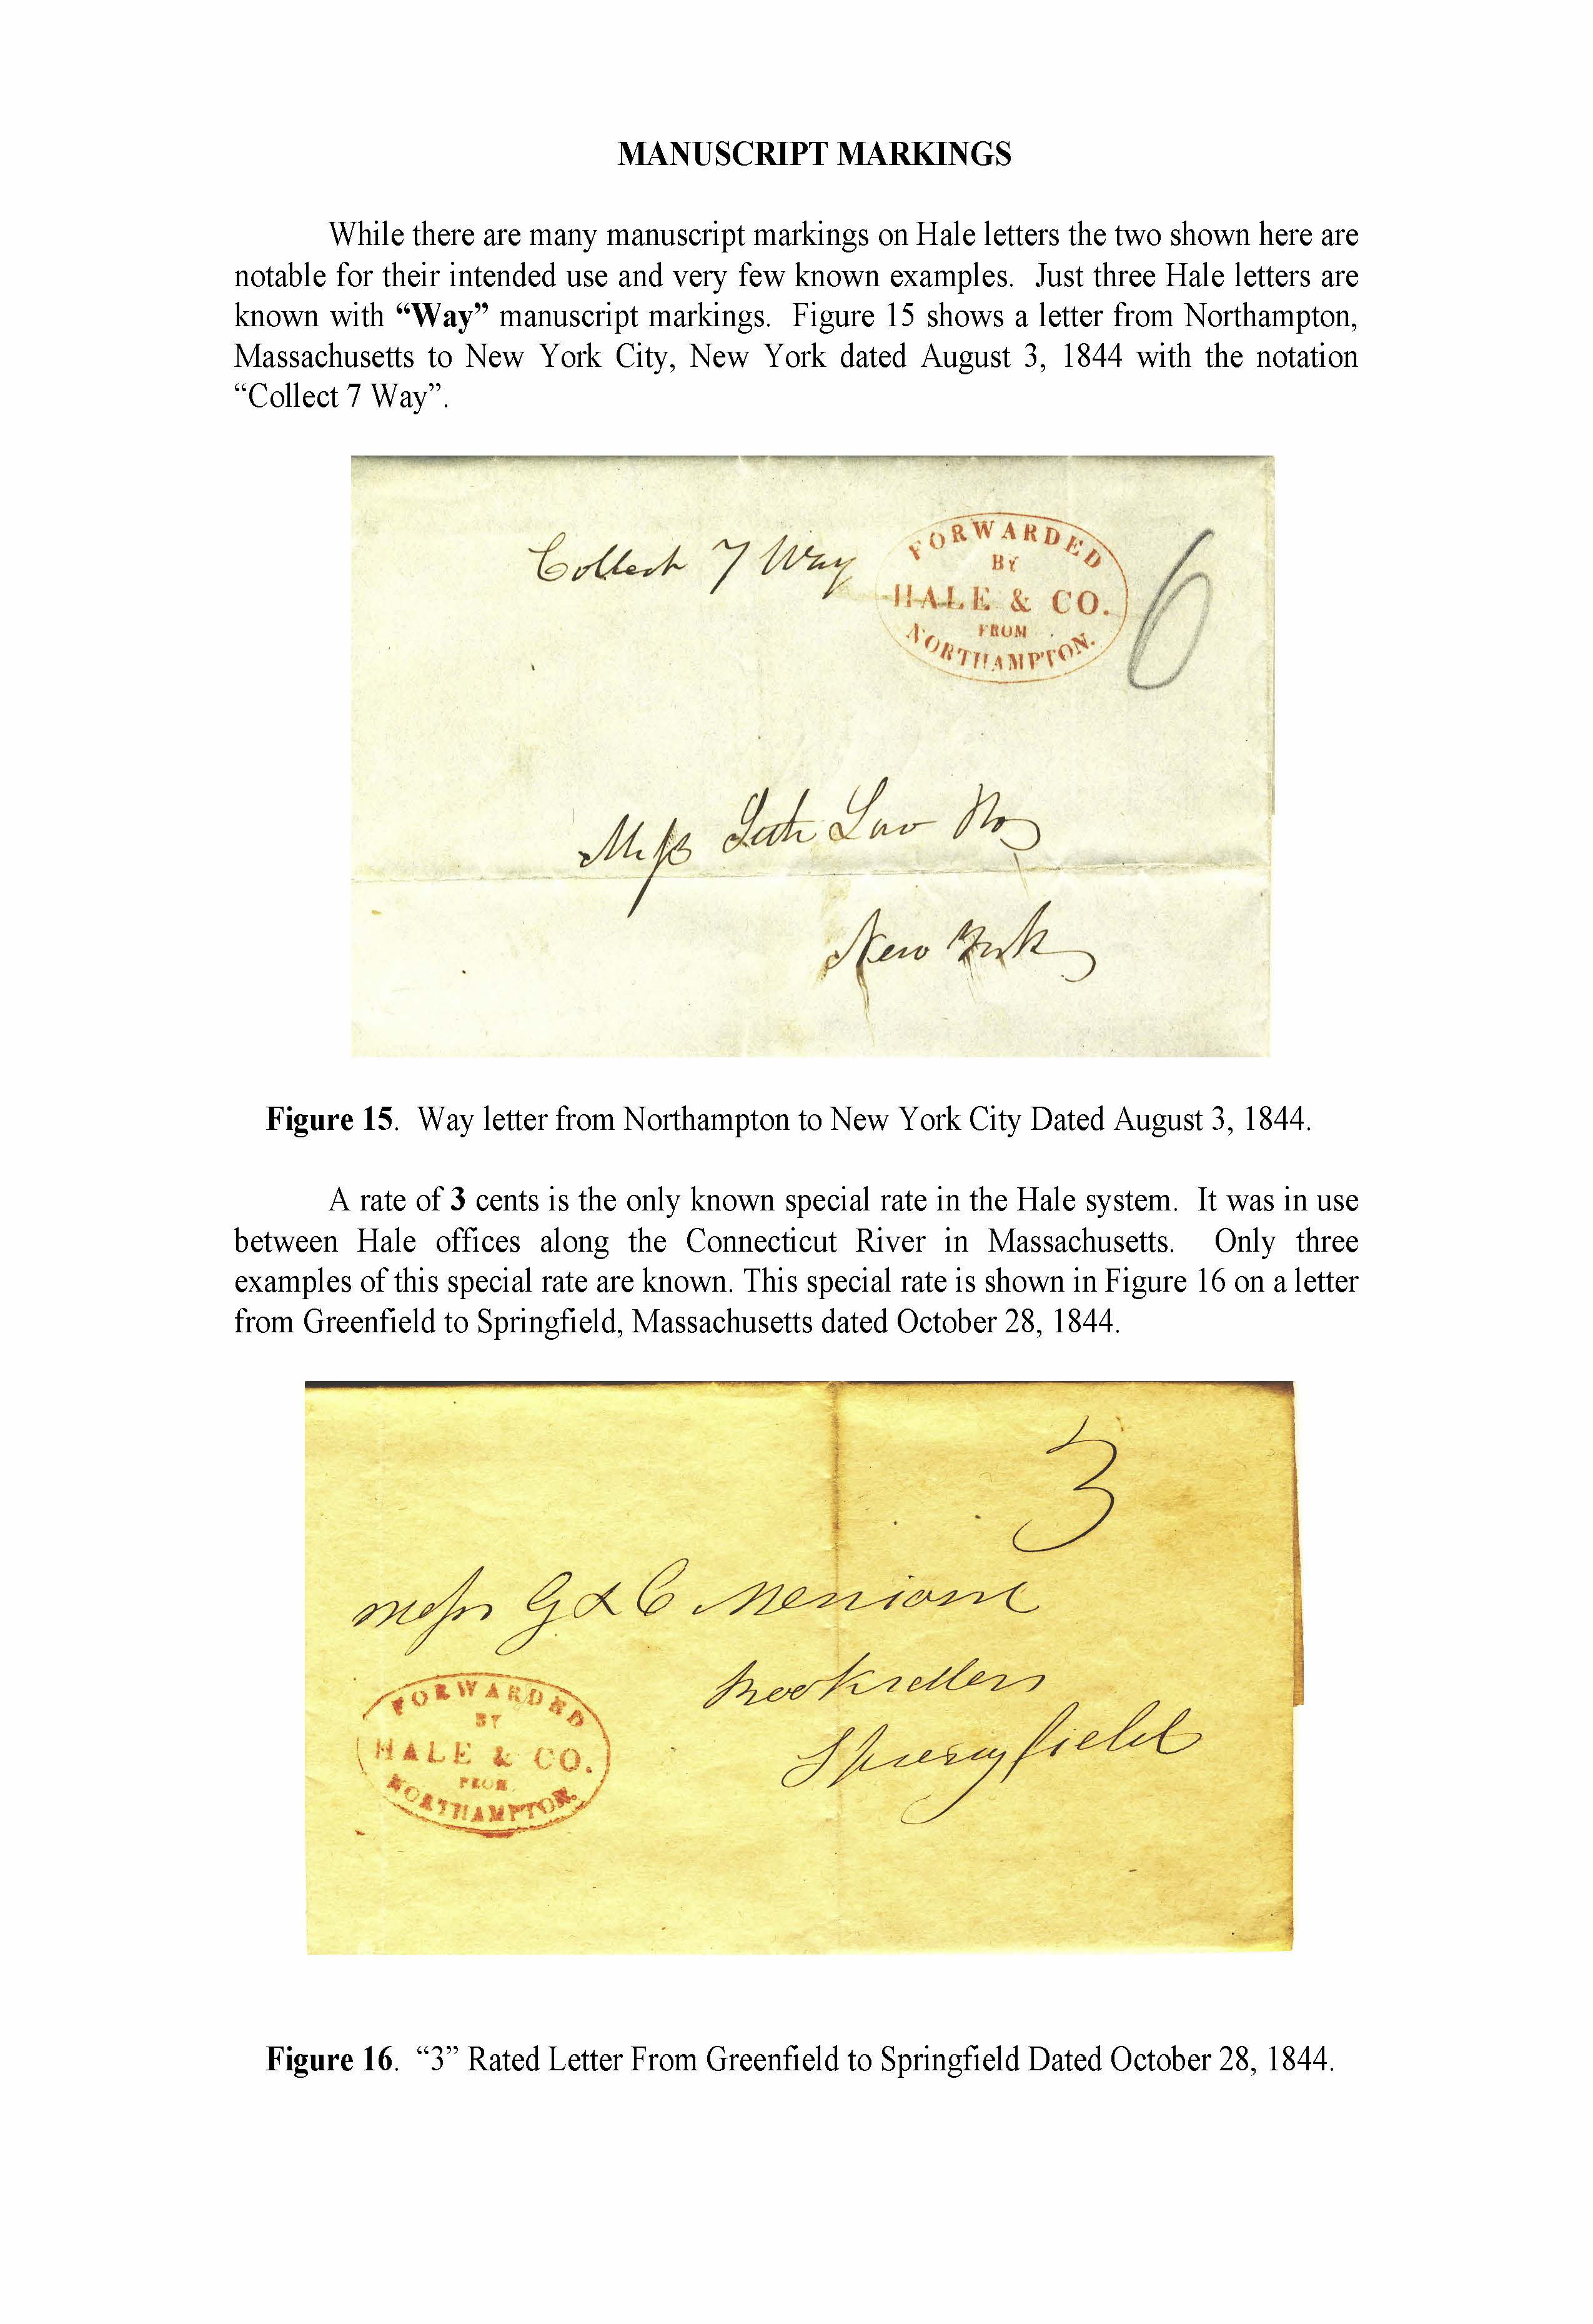 MANUSCRIPT MARKINGS
While there are many manuscript markings on Hale letters the two shown here are
notable for their intended use and very few known examples. Just three Hale letters are
known with “Way” manuscript markings. Figure 15 shows a letter from Northampton,
Massachusetts to New York City, New York dated August 3, 1844 with the notation
“Collect 7 Way”.
Collect 7 Way
FORWARDED
BY
HALE & CO.
FROM
NORTHAMPTON.
6
New York
Figure 15. Way letter from Northampton to New York City Dated August 3, 1844.
A rate of 3 cents is the only known special rate in the Hale system. It was in use
between Hale offices along the Connecticut River in Massachusetts. Only three
examples of this special rate are known. This special rate is shown in Figure 16 on a letter
from Greenfield to Springfield, Massachusetts dated October 28, 1844.
3
Messrs G & C Merriam
Booksellers
Springfield
FORWARDED
BY
HALE & CO.
FROM
NORTHAMPTON.
Figure 16. “3” Rated Letter From Greenfield to Springfield Dated October 28, 1844.